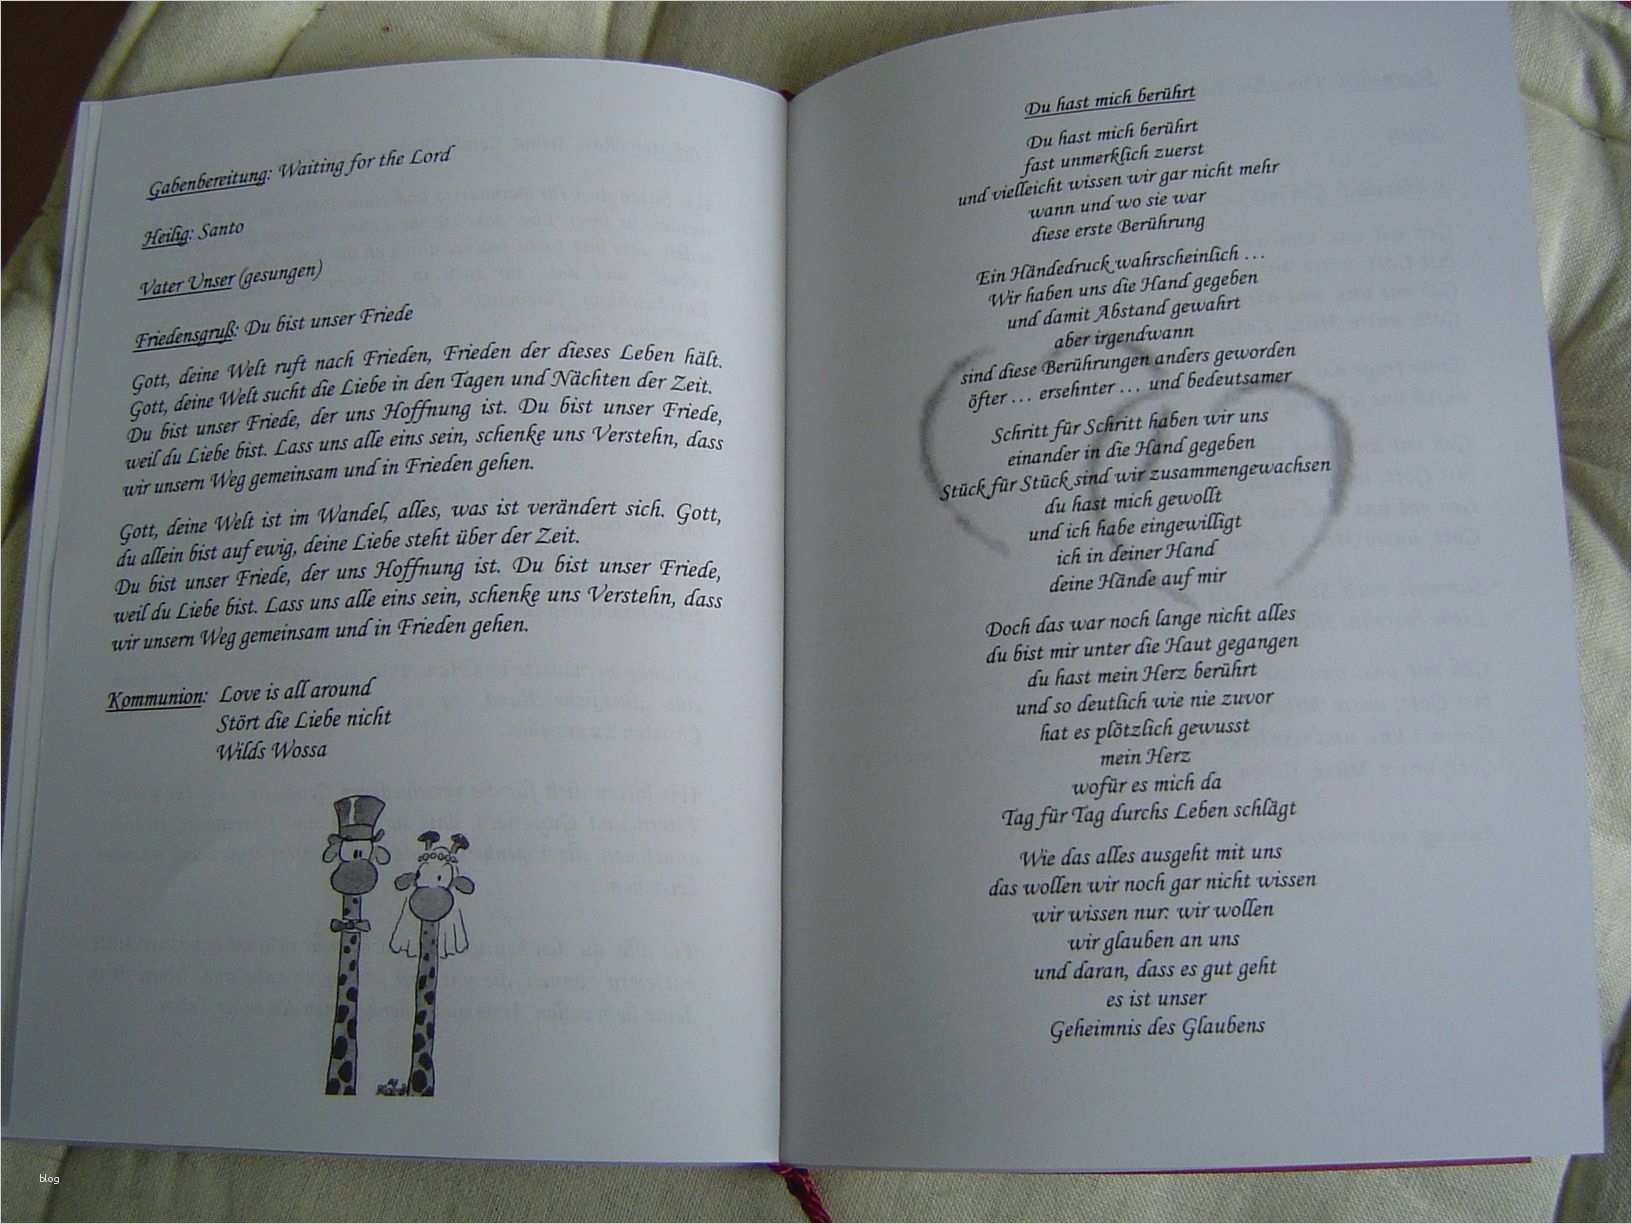 Gabenbereitung: Waiting for the Lord
Heilig: Santo
Vater Unser (gesungen)
Friedensgruß: Du bist unser Friede
Gott, deine Welt ruft nach Frieden, Frieden der dieses Leben hält.
Gott, deine Welt sucht die Liebe in den Tagen und Nächten der Zeit.
Du bist unser Friede, der uns Hoffnung ist. Du bist unser Friede,
weil du Liebe bist. Lass uns alle eins sein, schenke uns Verstehn, dass
wir unsern Weg gemeinsam und in Frieden gehen.
Gott, deine Welt ist im Wandel, alles, was ist verändert sich. Gott,
du allein bist auf ewig, deine Liebe steht über der Zeit.
Du bist unser Friede, der uns Hoffnung ist. Du bist unser Friede,
weil du Liebe bist. Lass uns alle eins sein, schenke uns Verstehn, dass
wir unsern Weg gemeinsam und in Frieden gehen.
Kommunion: Love is all around
Stört die Liebe nicht
Wilds Wossa
Du hast mich berührt
Du hast mich berührt
fast unmerklich zuerst
und vielleicht wissen wir gar nicht mehr
wann und wo sie war
diese erste Berührung
Ein Händedruck wahrscheinlich ...
Wir haben uns die Hand gegeben
und damit Abstand gewahrt
aber irgendwann
sind diese Berührungen anders geworden
öfter ... ersehnter ... und bedeutsamer
Schritt für Schritt haben wir uns
einander in die Hand gegeben
Stück für Stück sind wir zusammengewachsen
du hast mich gewollt
und ich habe eingewilligt
ich in deiner Hand
deine Hände auf mir
Doch das war noch lange nicht alles
du bist mir unter die Haut gegangen
du hast mein Herz berührt
und so deutlich wie nie zuvor
hat es plötzlich gewusst
mein Herz
wofür es mich da
Tag für Tag durchs Leben schlägt
Wie das alles ausgeht mit uns
das wollen wir noch gar nicht wissen
wir wissen nur: wir wollen
wir glauben an uns
und daran, dass es gut geht
es ist unser
Geheimnis des Glaubens
blog